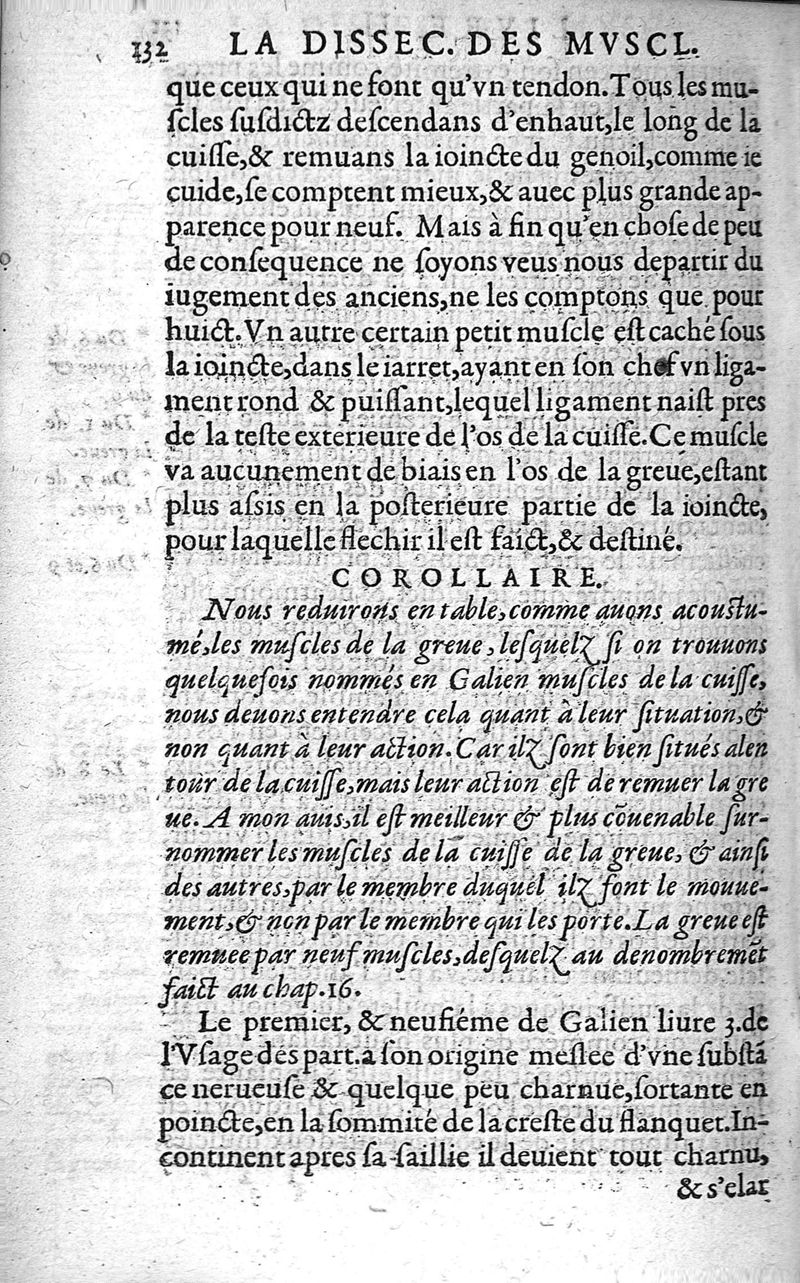 132 LA DISSEC. DES MVSCL.
que ceux qui ne font qu'vn tendon. Tous les mu-
ſcles ſuſdictz deſcendans d'enhaut, le long de la
cuiſſe, & remuans la ioincte du genoil, comme ie
cuide, ſe comptent mieux, & auec plus grande ap-
parence pour neuf. Mais à fin qu'en choſe de peu
de conſequence ne ſoyons veus nous departir du
iugement des anciens, ne les comptons que pour
huict. Vn autre certain petit muſcle eſt caché ſous
la ioincte, dans le iarret, ayant en ſon chef vn liga-
ment rond & puiſſant, lequel ligament naiſt pres
de la teſte exterieure de l'os de la cuiſſe. Ce muſcle
va aucunement de biais en l'os de la greue, eſtant
plus aſsis en la poſterieure partie de la ioincte,
pour laquelle flechir il eſt faict, & deſtiné.
COROLLAIRE.
Nous reduirons en table, comme auons acouſtu-
mé, les muſcles de la greue, leſquelz ſi on trouuons
quelqueſois nommés en Galien muſcles de la cuiſſe,
nous deuons entendre cela quant à leur ſituation, &
non quant à leur action. Car ilz ſont bien ſitués alen
tour de la cuiſſe, mais leur action eſt de remuer la gre
ue. A mon auis, il eſt meilleur & plus cōuenable ſur-
nommer les muſcles de la cuiſſe de la greue, & ainſi
des autres, par le membre duquel ilz font le mouue-
ment, & non par le membre qui les porte. La greue eſt
remuee par neuf muſcles, deſquelz au denombremēt
faict au chap. 16.
Le premier, & neufiéme de Galien liure 3. de
l'Vſage des part. a ſon origine meſlee d'vne ſubſtā
ce nerueuſe & quelque peu charnue, ſortante en
poincte, en la ſommité de la creſte du flanquet. In-
continent apres ſa ſaillie il deuient tout charnu,
& s'elar